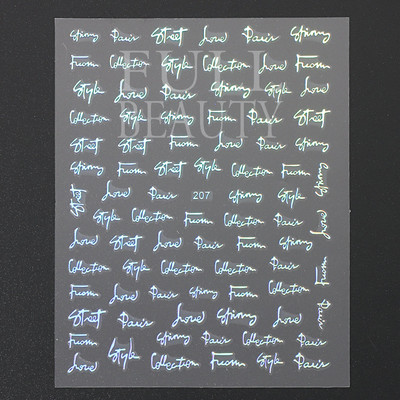 Spring Paris Street Love Paris Spring
From Collection Style Collection Love From
Style Love Paris Spring Style Spring
FULL
BEAUTY
Collection Style Spring From Paris Street
Street Street From Love Collection Paris
Spring From Street Style Collection From Spring
Street Love Paris 207 Spring Spring
Style Collection From Love Collection Love
Love Street Love Paris From Spring
Collection Style Collection Collection Paris From
From Love Paris Spring From Collection Paris
Street Paris Love Spring Love
Love Style Spring Paris Collection Paris
Collection From Style Paris